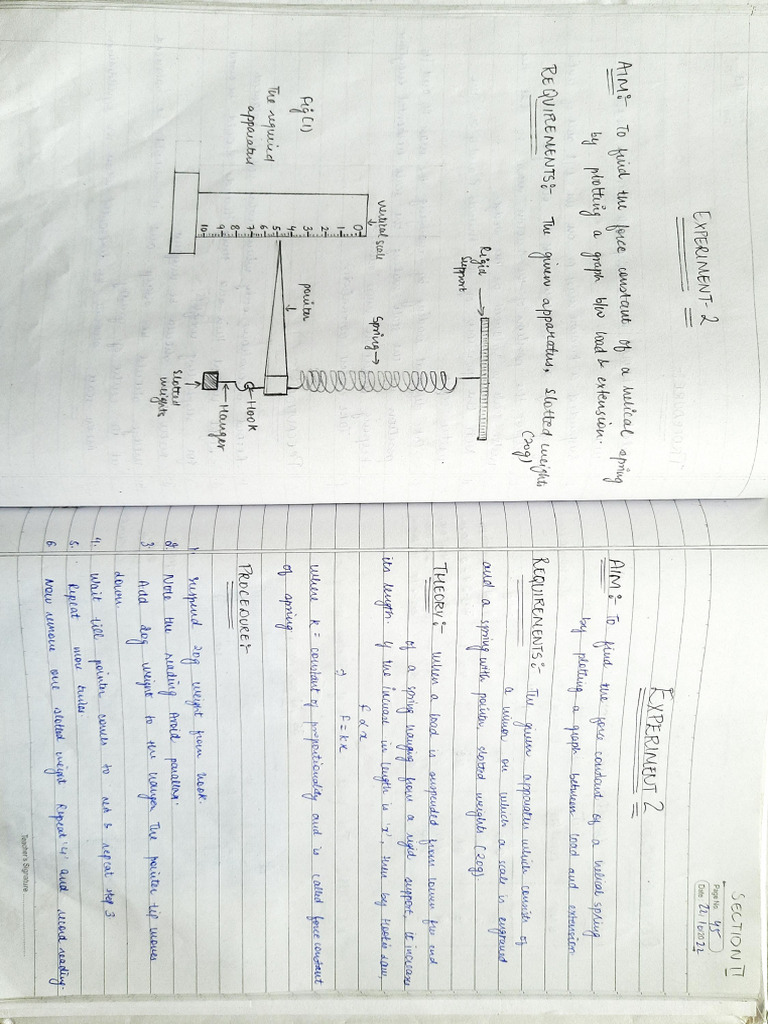 EXPERIMENT-2
AIM:- To find the force constant of a helical spring
by plotting a graph b/w load & extension.
REQUIREMENTS:- The given apparatus, slotted weights
(20g)
Rigid
support
spring
vertical scale
0
1
2
3
4
5
6
7
8
9
10
pointer
Hook
Hanger
Slotted
weights
Fig (1)
The required
apparatus
SECTION II
Page No. 45
Date 22/10/2022
EXPERIMENT 2
AIM:- To find the force constant of a helical spring
by plotting a graph between load and extension
REQUIREMENTS:- The given apparatus which consists of
a mirror on which a scale is engraved
and a spring with pointer, slotted weights (20g)
THEORY:- When a load is suspended from lower free end
of a spring hanging from a rigid support, it increases
its length. If the increase in length is 'x', then by Hooke's law,
F ∝ x
⇒ F = kx
where k = constant of proportionality and is called force constant
of spring
PROCEDURE:-
1. Suspend 20g weight from hook.
2. Note the reading Avoid parallax.
3. Add 20g weight to the hanger The pointer tip moves
down.
4. Wait till pointer comes to rest & repeat step 3
5. Repeat more times
6 Now remove one slotted weight Repeat '4' and record reading.
Teacher's Signature